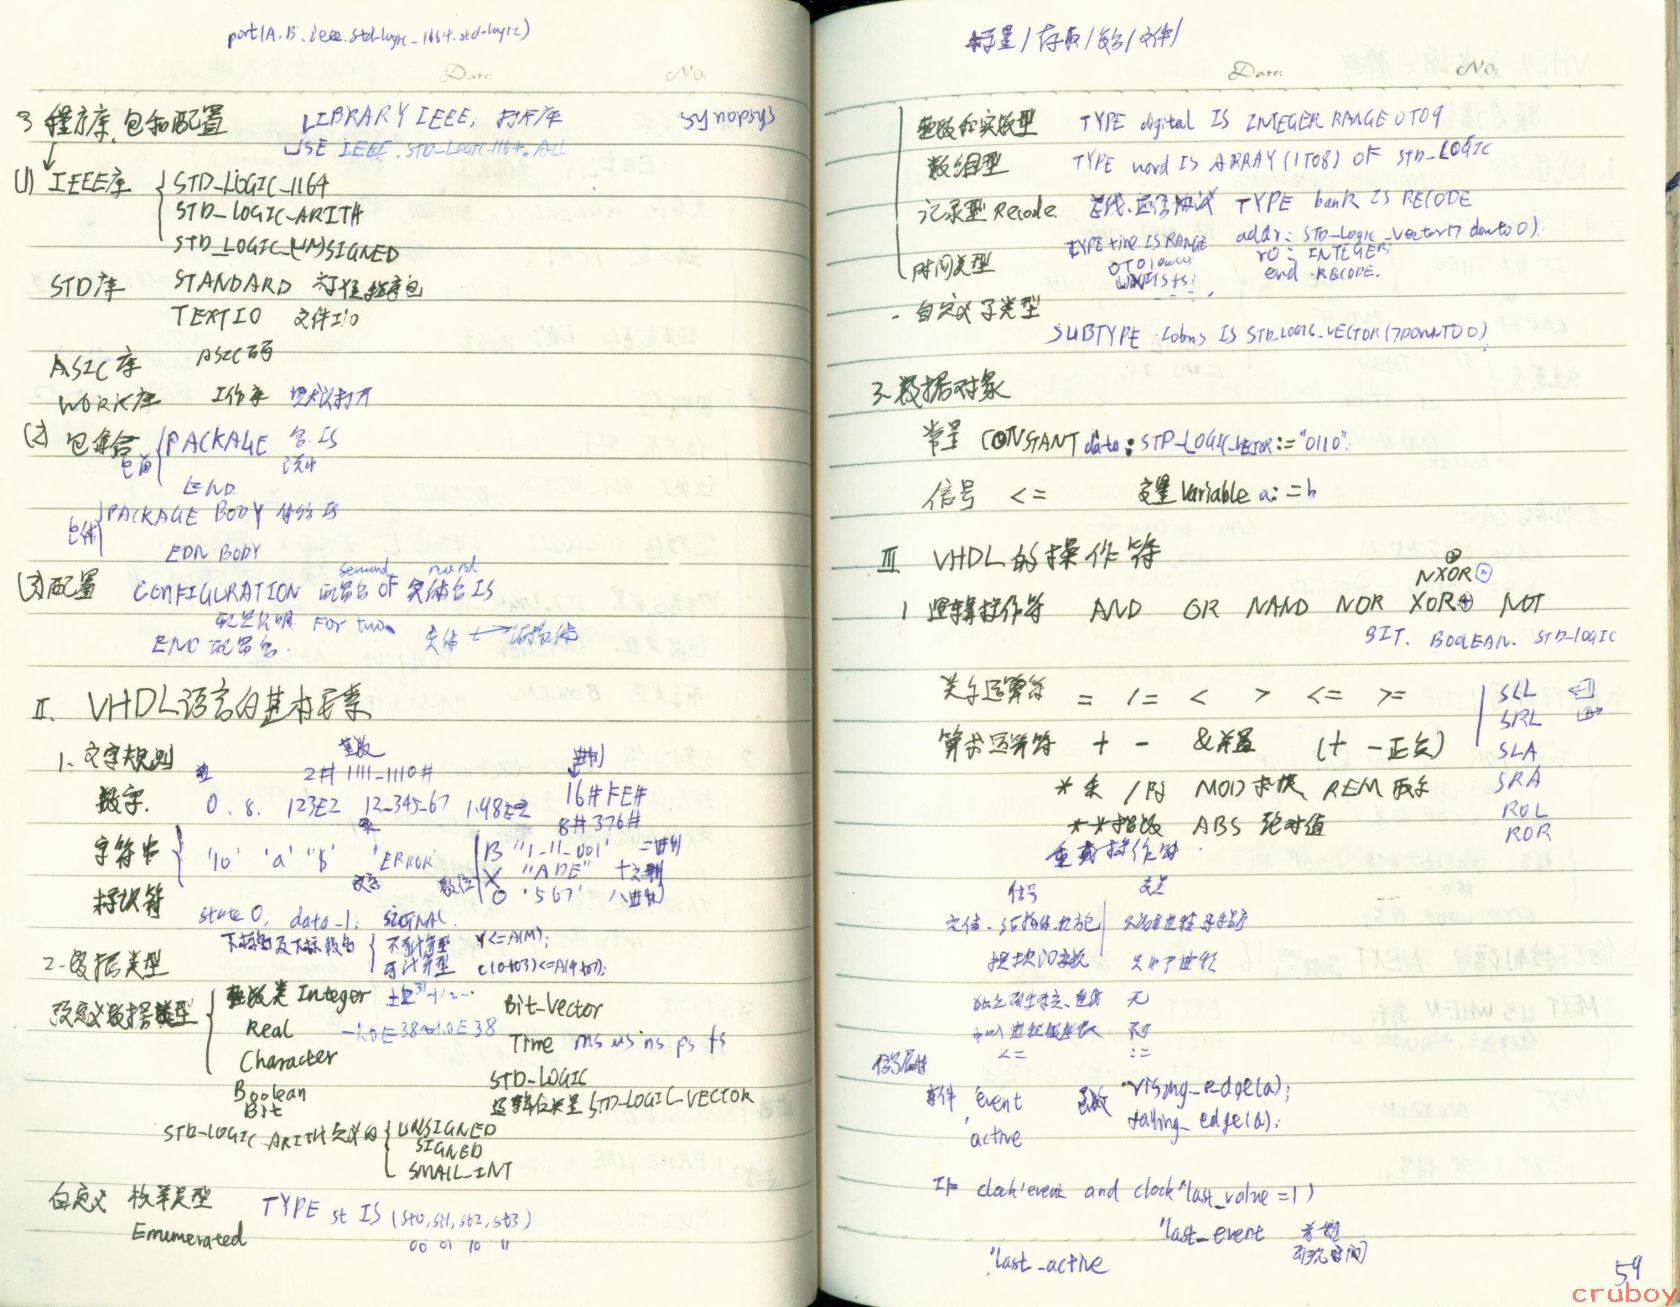 port(A.B.ieee.std_logic_1164.std_logic)
Date: No:
3 程序库、包和配置 LIBRARY IEEE; 打开库 synopsys
USE IEEE.STD_LOGIC_1164.ALL
(1) IEEE库 STD_LOGIC_1164
STD_LOGIC_ARITH
STD_LOGIC_(UN)SIGNED
STD库 STANDARD
TEXTIO 文件I/O
ASIC库 ASIC码
WORK库 工作库 默认打开
(2) 包集合 PACKAGE 名 IS
包首
END
包体 PACKAGE BODY IS
EDN BODY
(3) 配置 CONFIGURATION 配置名 OF 实体名 IS
配置说明 For two 实体 结构体
END 配置名.
II. VHDL语言的基本要素
1. 文字规则 整数 进制
2#1111_1110#
数字. 0. 8. 123E2 12_345_67 1.98E2 16#FE#
8#376#
字符串 '10' 'a' 'b' 'ERROR' B "1_11_001" 二进制
文字 数位 X "ADE" 十六进制
O '567' 八进制
标识符 state0; data_1; SIGNAL
下标名及下标段名 不可计算型 Y<=A(M);
2. 数据类型 可计算型 C(0to3)<=A(4to7);
预定义数据类型 整数类 Integer Bit-Vector
Real -1.0E38~1.0E38
Time ms us ns ps fs
Character
STD-LOGIC
Boolean
逻辑位矢量 STD-LOGIC-VECTOR
Bit
STD_LOGIC_ARITH 定义的 UNSIGNED
SIGNED
SMALL_INT
自定义 枚举类型 TYPE st IS (st0,st1,st2,st3)
Enumerated 00 01 10 11
标量/存取/复合/文件/
Date: No:
整数和实数型 TYPE digital IS INTEGER RANGE 0 TO 9
数组型 TYPE word IS ARRAY(1 TO 8) OF STD_LOGIC
记录型 Recode. 总线、通信协议 TYPE bank IS RECODE
TYPE time IS RANGE addr: STD-Logic_vector(7 downto 0);
时间类型 r0: INTEGER;
end RECODE.
- 自定义子类型
SUBTYPE IS STD_LOGIC_VECTOR(7 DOWNTO 0)
3. 数据对象
常量 CONSTANT data: STD_LOGIC_VECTOR:="0110".
信号 <= 变量 Variable a:=b
III VHDL的操作符
NXOR
1 逻辑操作符 AND OR NAND NOR XOR⊕ NOT
BIT. BOOLEAN. STD-LOGIC
关系运算符 = /= < > <= >= SLL
SRL
算术运算符 + - &并置 (+ -正负) SLA
*乘 /除 MOD求模 REM取余 SRA
**指数 ABS 绝对值 ROL
ROR
重载操作符.
信号 变量
实体、结构体、
无
<= :=
信号属性
事件 'event 函数 rising_edge(a);
'active falling_edge(a);
IF clock'event and clock'last_value=1)
'last_event
'last_active
59
cruboy